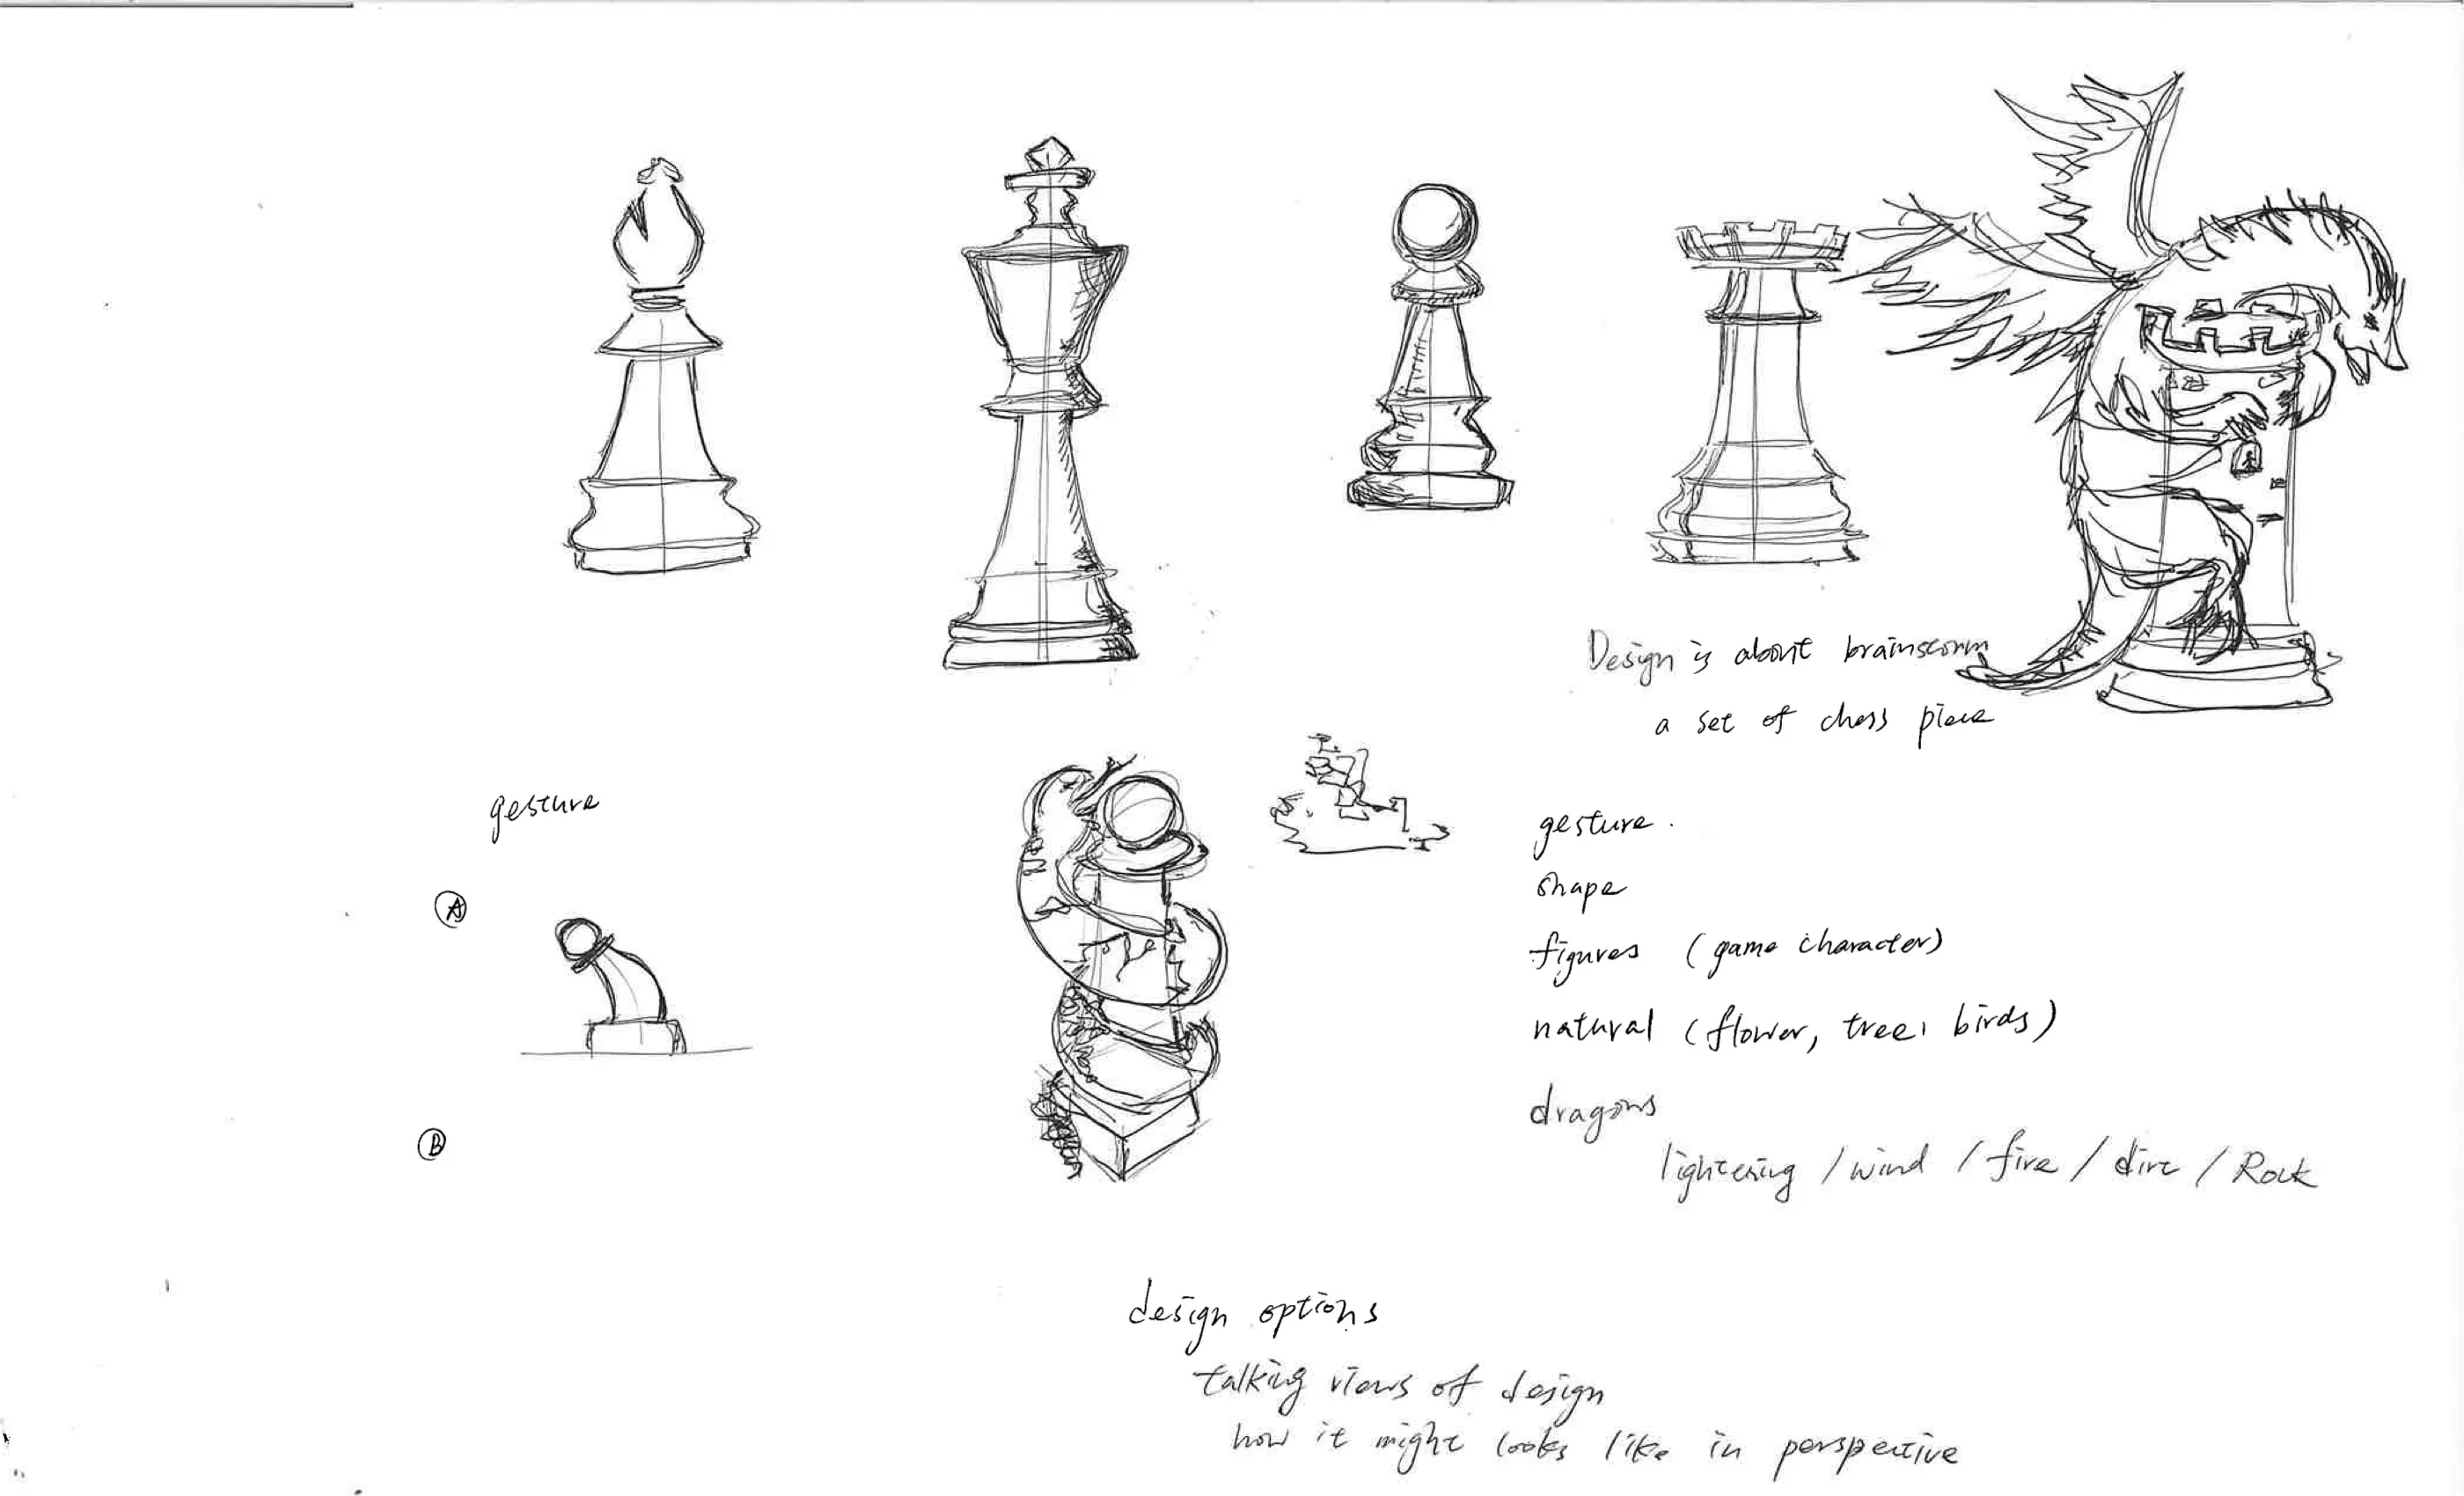 Design is about brainstorm
a set of chess piece
gesture
gesture.
shape
figures (game character)
natural (flower, tree, birds)
dragons
lightening / wind / fire / dirt / Rock
A
B
design options
talking views of design
how it might looks like in perspective